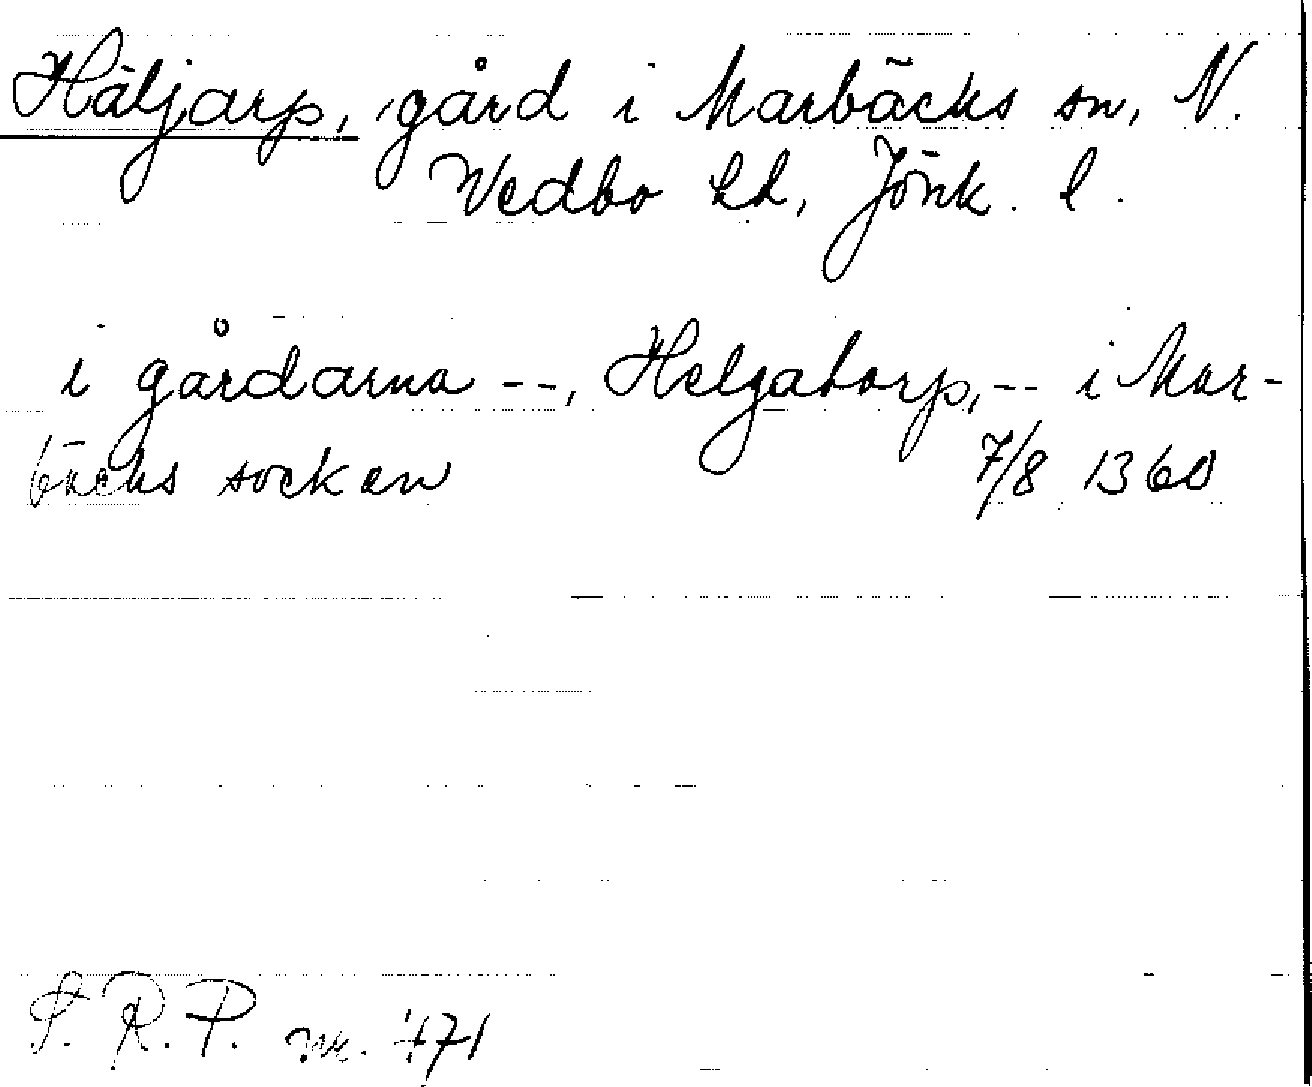 Häljarp, gård i Marbäcks sn, N.
Vedbo hd, Jönk. l.
i gårdarna --, Helgatorp, -- i Mar-
bäcks socken 7/8 1360
S. R. P. nr. 471